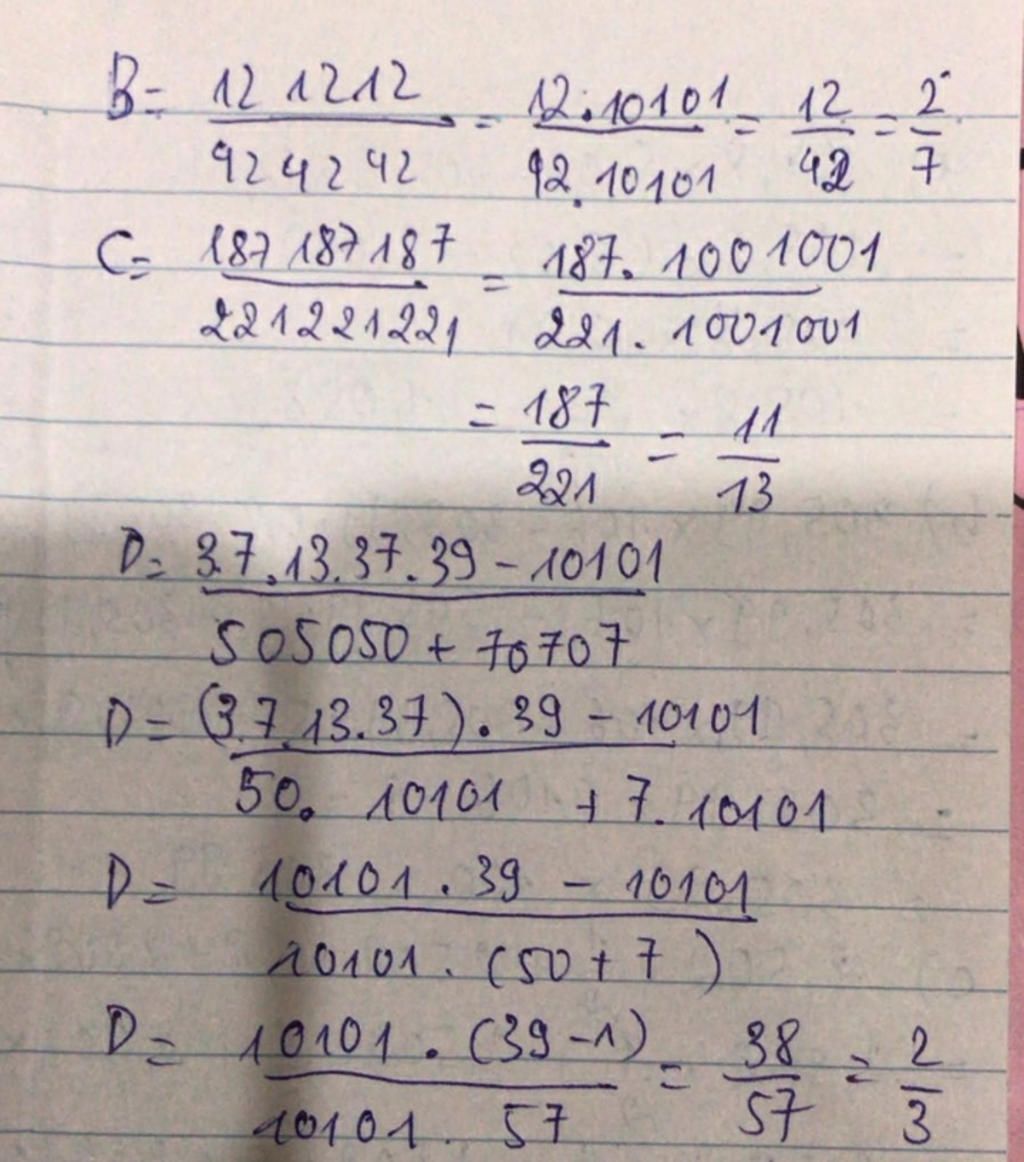 B = 12 12 12 / 42 42 42 = 12.10101 / 42.10101 = 12/42 = 2/7
C = 187 187 187 / 221221221 = 187. 1001001 / 221. 1001001
= 187/221 = 11/13
D = 3.7.13.37.39 - 10101 / 505050 + 70707
D = (3.7.13.37). 39 - 10101 / 50. 10101 + 7. 10101
D = 10101 . 39 - 10101 / 10101 . (50 + 7)
D = 10101 . (39 - 1) / 10101 . 57 = 38/57 = 2/3